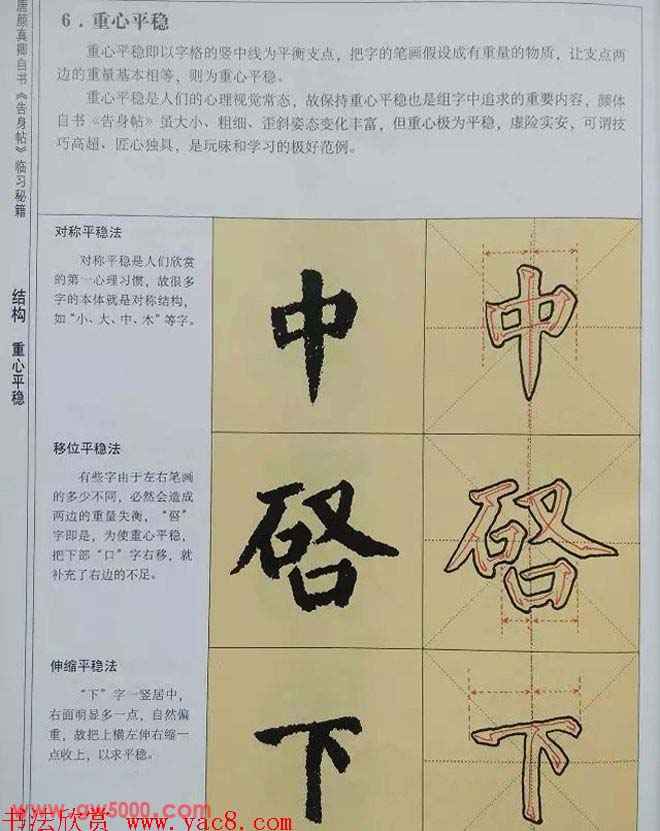 唐颜真卿自书《告身帖》临习秘籍
结构 重心平稳
6.重心平稳
重心平稳即以字格的竖中线为平衡支点，把字的笔画假设成有重量的物质，让支点两
边的重量基本相等，则为重心平稳。
重心平稳是人们的心理视觉常态，故保持重心平稳也是组字中追求的重要内容，颜体
自书《告身帖》虽大小、粗细、歪斜姿态变化丰富，但重心极为平稳，虚险实安，可谓技
巧高超、匠心独具，是玩味和学习的极好范例。
对称平稳法
对称平稳是人们欣赏
的第一心理习惯，故很多
字的本体就是对称结构，
如“小、大、中、木”等字。
中
中
移位平稳法
有些字由于左右笔画
的多少不同，必然会造成
两边的重量失衡，“
字即是，为使重心平稳，
把下部“口”字右移，就
补充了右边的不足。
伸缩平稳法
“下”字一竖居中，
右面明显多一点，自然偏
重，故把上横左伸右缩一
点收上，以求平稳。
下
下
www.gw5000.com
书法欣赏 www.yac8.com